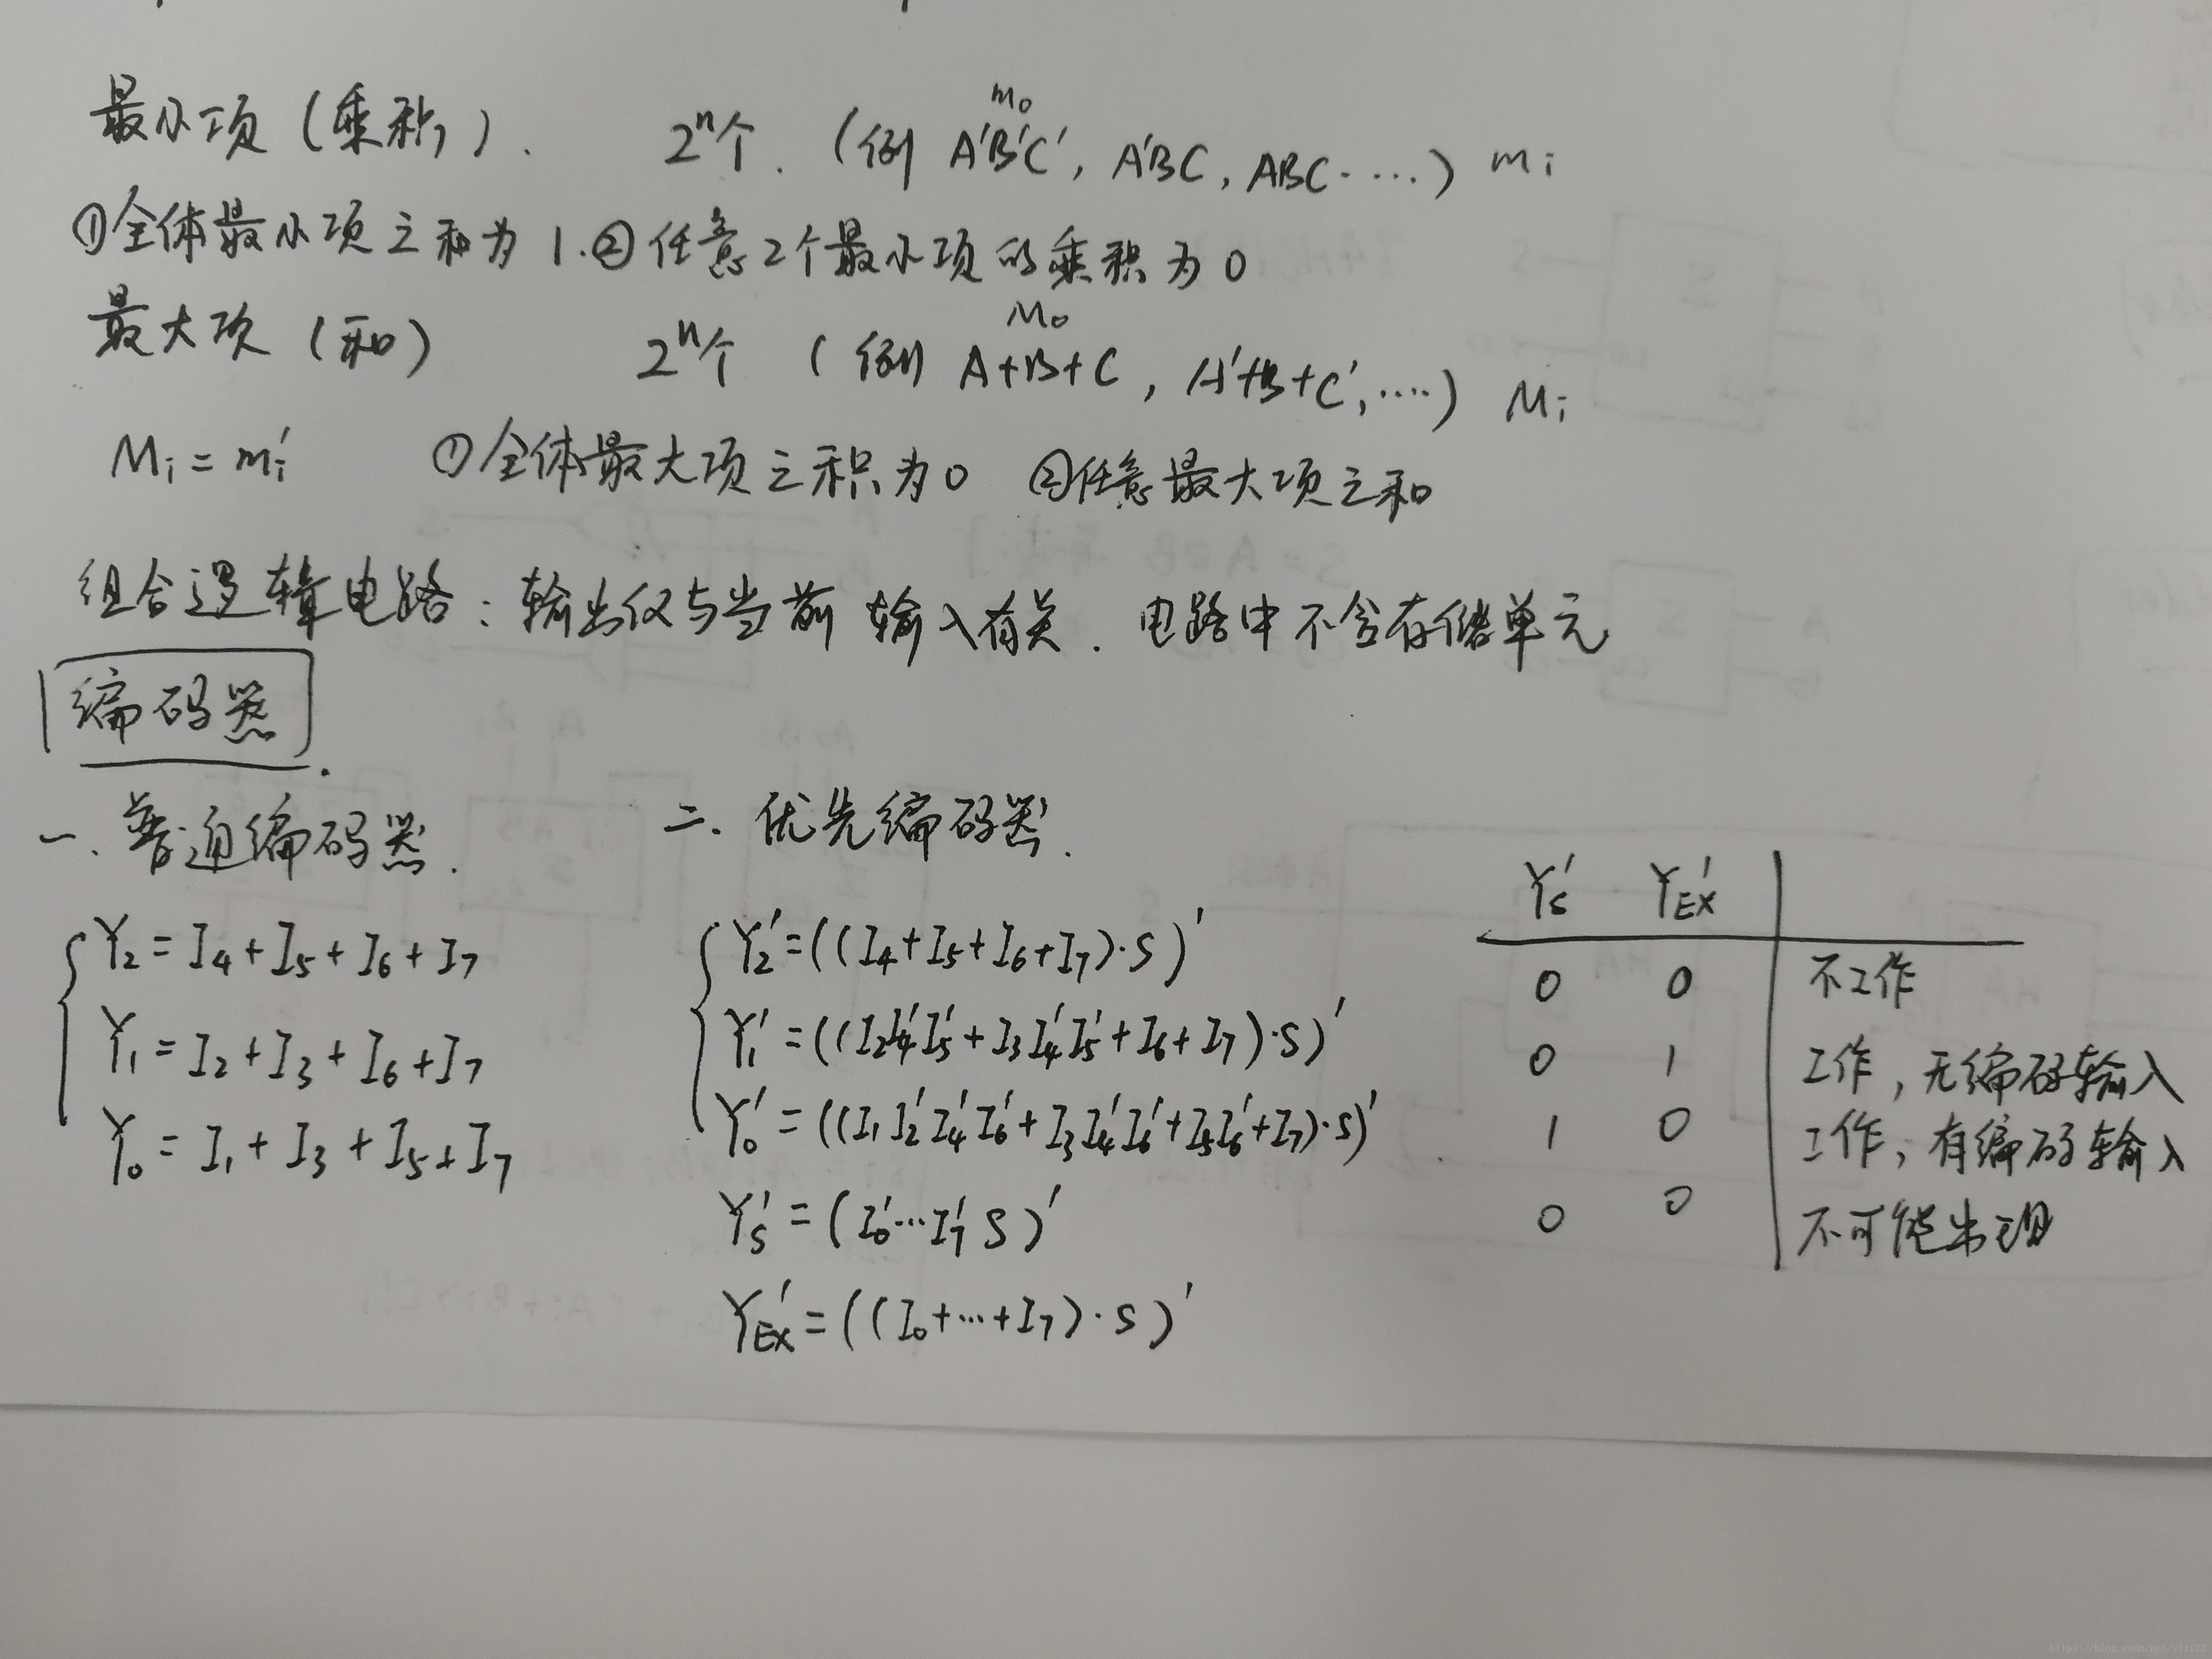 最小项（乘积）. 2ⁿ个. （例 A'B'C', A'BC, ABC.....） mᵢ
m₀
①全体最小项之和为1.②任意2个最小项的乘积为0
最大项（和） 2ⁿ个 （例 A+B+C, A'+B+C',....） Mᵢ
M₀
Mᵢ=mᵢ' ①全体最大项之积为0 ②任意最大项之和
组合逻辑电路：输出仅与当前输入有关. 电路中不含存储单元
编码器
一. 普通编码器.
Y₂=I₄+I₅+I₆+I₇
Y₁=I₂+I₃+I₆+I₇
Y₀=I₁+I₃+I₅+I₇
二. 优先编码器.
Y₂'=((I₄+I₅+I₆+I₇)·S)'
Y₁'=((I₂I₄'I₅'+I₃I₄'I₅'+I₆+I₇)·S)'
Y₀'=((I₁I₂'I₄'I₆'+I₃I₄'I₆'+I₅I₆'+I₇)·S)'
Yₛ'=(I₀'...I₇'S)'
Y_EX'=((I₀+...+I₇)·S)'
Yₛ' Y_EX'
0 0 不工作
0 1 工作，无编码输入
1 0 工作，有编码输入
0 0 不可能出现